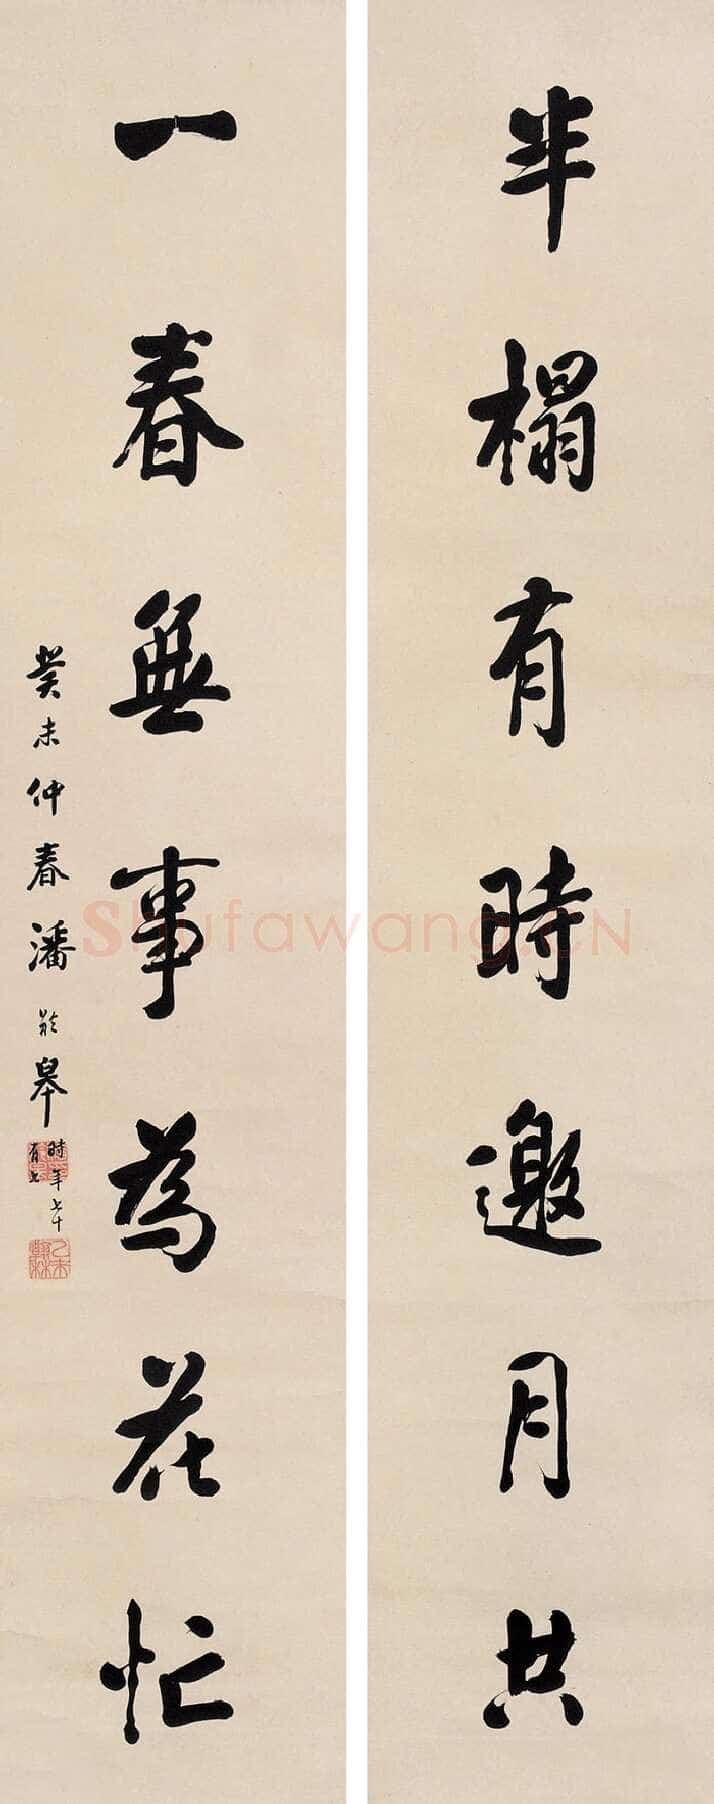 半榻有時邀月共
一春無事為花忙
癸未仲春潘齡皋時年七十
有七
乙未翰林
Shufawang.CN